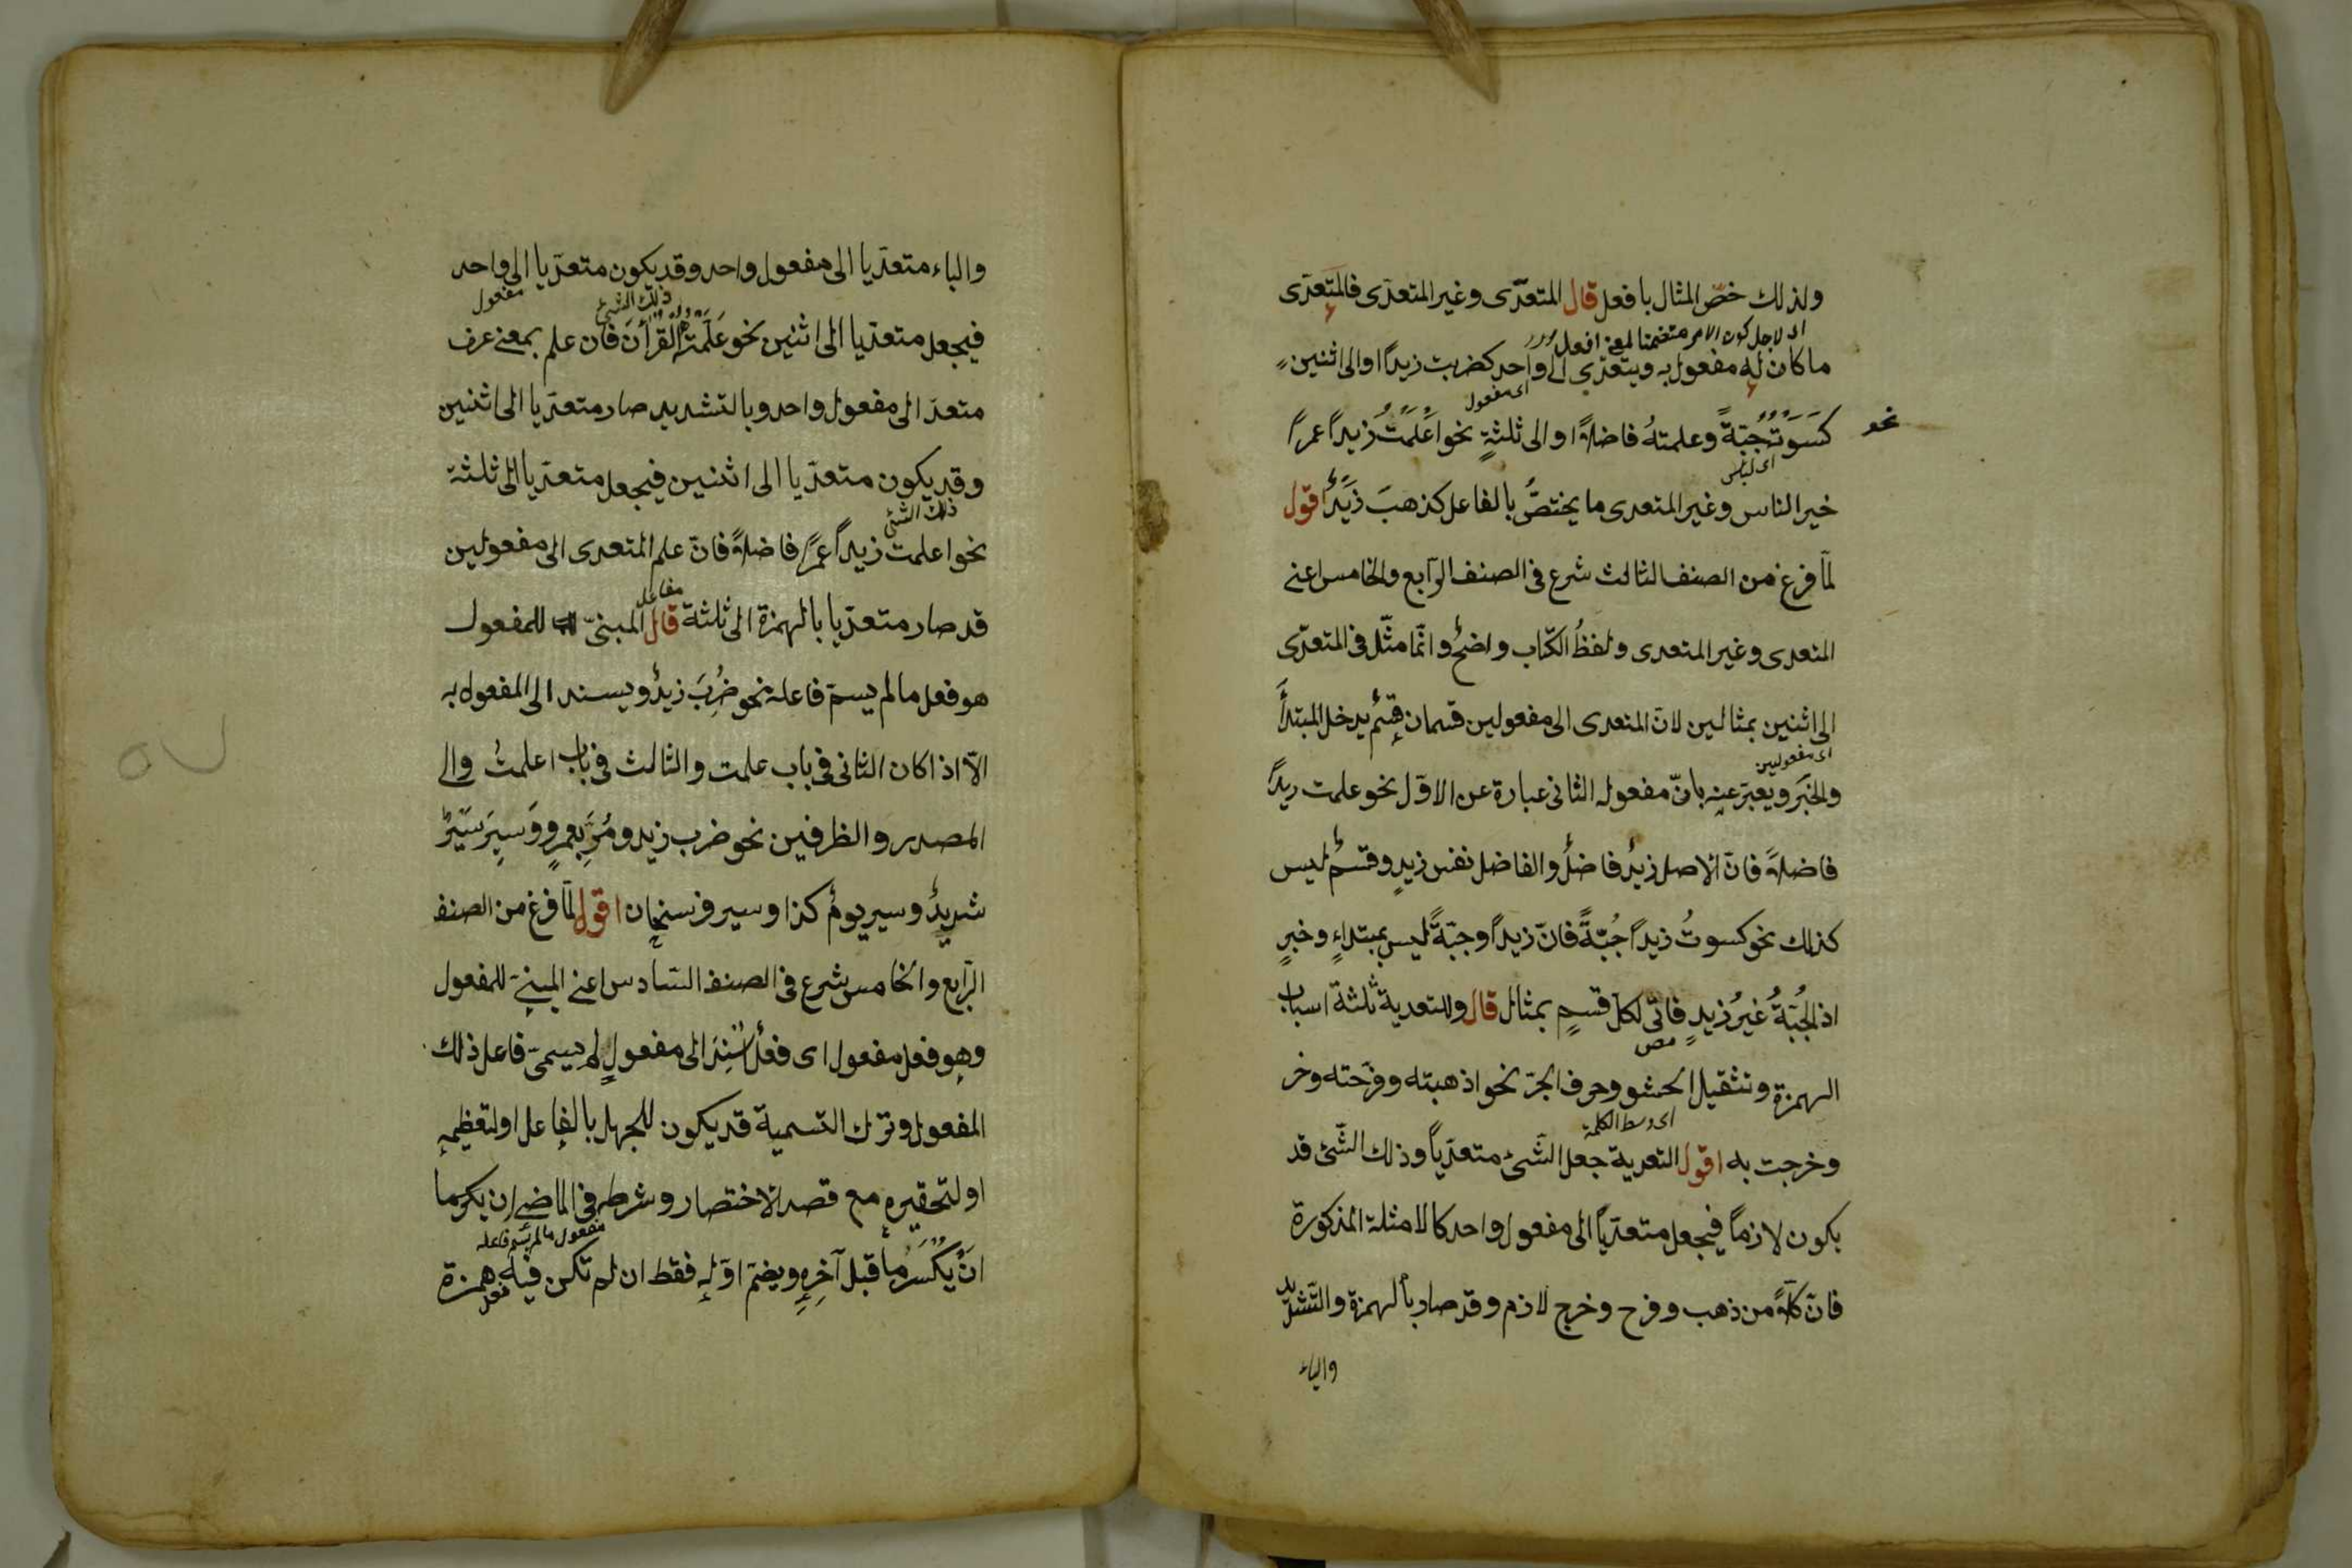 ولذلك خصّ المثال بافعل قال المتعدّى وغير المتعدى فالمتعدى
اى لاجل كون الامر متضمنا لمعنى افعل
ما كان له مفعول به ويتعدّي الى واحد كضربت زيدًا او الى اثنين
اى مفعول
نحو
كَسَوَتُ جُبّةً وعلمتهُ فاضلاً او الى ثلثةٍ نحو اعلمتُ زيدًا عمرًا
خير الناس وغير المتعدى ما يختصُّ بالفاعل كذهبَ زَيدٌ اقول
لمّا فرغ من الصنف الثالث شرع فى الصنف الرّابع والخامس اعنے
المتعدى وغير المتعدى ولفظُ الكتاب واضحٌ وانّما مثّل فى المتعدّى
الى اثنين بمثالين لانّ المتعدى الى مفعولين قسمان قسمٌ يدخل المبتدأَ
اى مفعولين
والخبَر ويعبّر عنه بانّ مفعوله الثانى عبارة عن الاوّل نحو علمت زيدًا
فاضلاً فانّ الاصل زيدٌ فاضلٌ والفاضل نفس زيدٍ وقسمٌ ليس
كذلك نحو كسوتُ زيدًا جُبّةً فانّ زيدًا وجبّةً ليس بمبتداءٍ وخبرٍ
اذ الجُبّةُ غيرُ زيدٍ فاتى لكلّ قسمٍ بمثال قال وللتعدية ثلثة اسباب
الهمزة وتثقيل الحشو وحرف الجرّ نحو اذهبته وفرّحته وخر
اى وسط الكلمة
وخرجت به اقول التعدية جعل الشّئ متعدّيًا وذلك الشّئ قد
يكون لازمًا فيجعل متعدّيًا الى مفعول واحد كالامثلة المذكورة
فانّ كلاًّ من ذهب وفرح وخرج لازم وقد صار بالهمزة والتّشديد
والباء
والباء متعدّيا الى مفعول واحد وقد يكون متعدّيا الى واحد
ذلك الشئ مفعول
فيجعل متعدّيا الى اثنين نحو عَلّمَتْهُ القرأنَ فان علم بمعنى عرف
متعدّ الى مفعول واحد وبالتشديد صار متعدّيا الى اثنين
وقد يكون متعدّيا الى اثنين فيجعل متعدّيا الى ثلثة
ذلك الشئ
نحو اعلمت زيدًا عمرًا فاضلاً فانّ علم المتعدى الى مفعولين
قد صار متعدّيا بالهمزة الى ثلثة قال المبنىّ للمفعول
هو فعل ما لم يسمّ فاعله نحو ضُرِبَ زيدٌ ويسند الى المفعول به
الاّ اذا كان الثانى فى باب علمت والثالث فى باب اعلمتُ والى
المصدر والظرفين نحو ضرب زيد ومُرَّ بعمرٍو وَسِيرَ سَيرٌ
شديدٌ وسير يومُ كذا وسير فرسخان اقول لمّا فرغ من الصنف
الرّابع والخامس شرع فى الصنف السّادس اعنے المبنىّ للمفعول
وهو فعل مفعول اى فعلٌ اُسْنِدَ الى مفعولٍ لم يسمىّ فاعل ذلك
المفعول وترك التسمية قد يكون للجهل بالفاعل او لتعظيمهِ
او لتحقيره مع قصد الاختصار وشرطه فى الماضے ان يكسر ما
مفعول ما لم يسمّ فاعله
انْ يُكْسَرَ ما قبل آخرِهِ ويضمّ اوّله فقط ان لم تكن فيه همزة